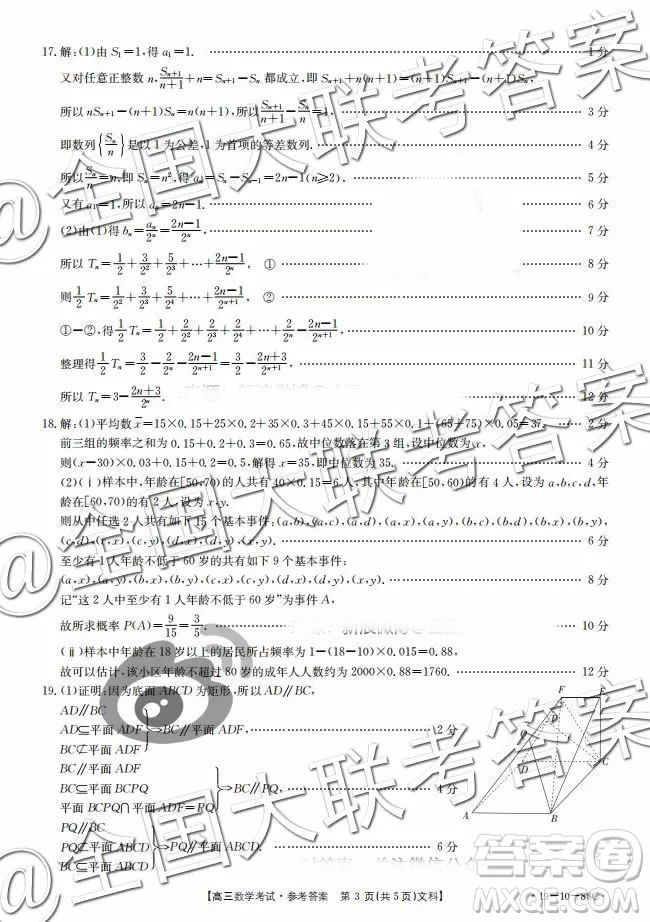 17.解:(1)由 S₁=1,得 a₁=1. 1分
又对任意正整数 n, Sₙ₊₁/(n+1)+n=Sₙ₊₁-Sₙ 都成立,即 Sₙ₊₁+n(n+1)=(n+1)Sₙ₊₁-(n+1)Sₙ,
所以 nSₙ₊₁-(n+1)Sₙ=n(n+1),所以 Sₙ₊₁/(n+1)-Sₙ/n=1. 3分
即数列{Sₙ/n}是以1为公差,1为首项的等差数列. 4分
所以 Sₙ/n=n,即 Sₙ=n²,得 aₙ=Sₙ-Sₙ₋₁=2n-1(n≥2), 5分
又有 a₁=1,所以 aₙ=2n-1. 6分
(2)由(1)得 bₙ=aₙ/2ⁿ=(2n-1)/2ⁿ, 7分
所以 Tₙ=1/2+3/2²+5/2³+…+(2n-1)/2ⁿ, ① 8分
则 1/2 Tₙ=1/2²+3/2³+5/2⁴+…+(2n-1)/2ⁿ⁺¹, ② 9分
①-②,得 1/2 Tₙ=1/2+2/2²+2/2³+2/2⁴+…+2/2ⁿ-(2n-1)/2ⁿ⁺¹, 10分
整理得 1/2 Tₙ=3/2-2/2ⁿ-(2n-1)/2ⁿ⁺¹=3/2-(2n+3)/2ⁿ⁺¹, 11分
所以 Tₙ=3-(2n+3)/2ⁿ. 12分
18.解:(1)平均数 x̄=15×0.15+25×0.2+35×0.3+45×0.15+55×0.1+(65+75)×0.05=37. 2分
前三组的频率之和为0.15+0.2+0.3=0.65,故中位数落在第3组,设中位数为x,
则(x-30)×0.03+0.15+0.2=0.5,解得 x=35,即中位数为35. 4分
(2)(ⅰ)样本中,年龄在[50,70)的人共有40×0.15=6人,其中年龄在[50,60)的有4人,设为a,b,c,d,年
龄在[60,70)的有2人,设为 x,y.
则从中任选2人共有如下15个基本事件:(a,b),(a,c),(a,d),(a,x),(a,y),(b,c),(b,d),(b,x),(b,y),
(c,d),(c,x),(c,y),(d,x),(d,y),(x,y). 6分
至少有1人年龄不低于60岁的共有如下9个基本事件:
(a,x),(a,y),(b,x),(b,y),(c,x),(c,y),(d,x),(d,y),(x,y). 8分
记“这2人中至少有1人年龄不低于60岁”为事件A,
故所求概率 P(A)=9/15=3/5. 10分
(ⅱ)样本中年龄在18岁以上的居民所占频率为1-(18-10)×0.015=0.88,
故可以估计,该小区年龄不超过80岁的成年人人数约为2000×0.88=1760. 12分
19.(1)证明:因为底面 ABCD 为矩形,所以 AD//BC,
AD//BC
AD⊆平面 ADF ⇒BC//平面 ADF, 2分
BC⊄平面 ADF
BC//平面 ADF
BC⊆平面 BCPQ ⇒BC//PQ, 4分
平面 BCPQ∩平面 ADF=PQ
PQ//BC
PQ⊄平面 ABCD ⇒PQ//平面 ABCD. 6分
BC⊆平面 ABCD
F E
Q
P
D C
A B
【高三数学考试·参考答案 第3页(共5页)文科】
@全国大联考答案
@全国大联考答案
@全国大联考答案
答案圈